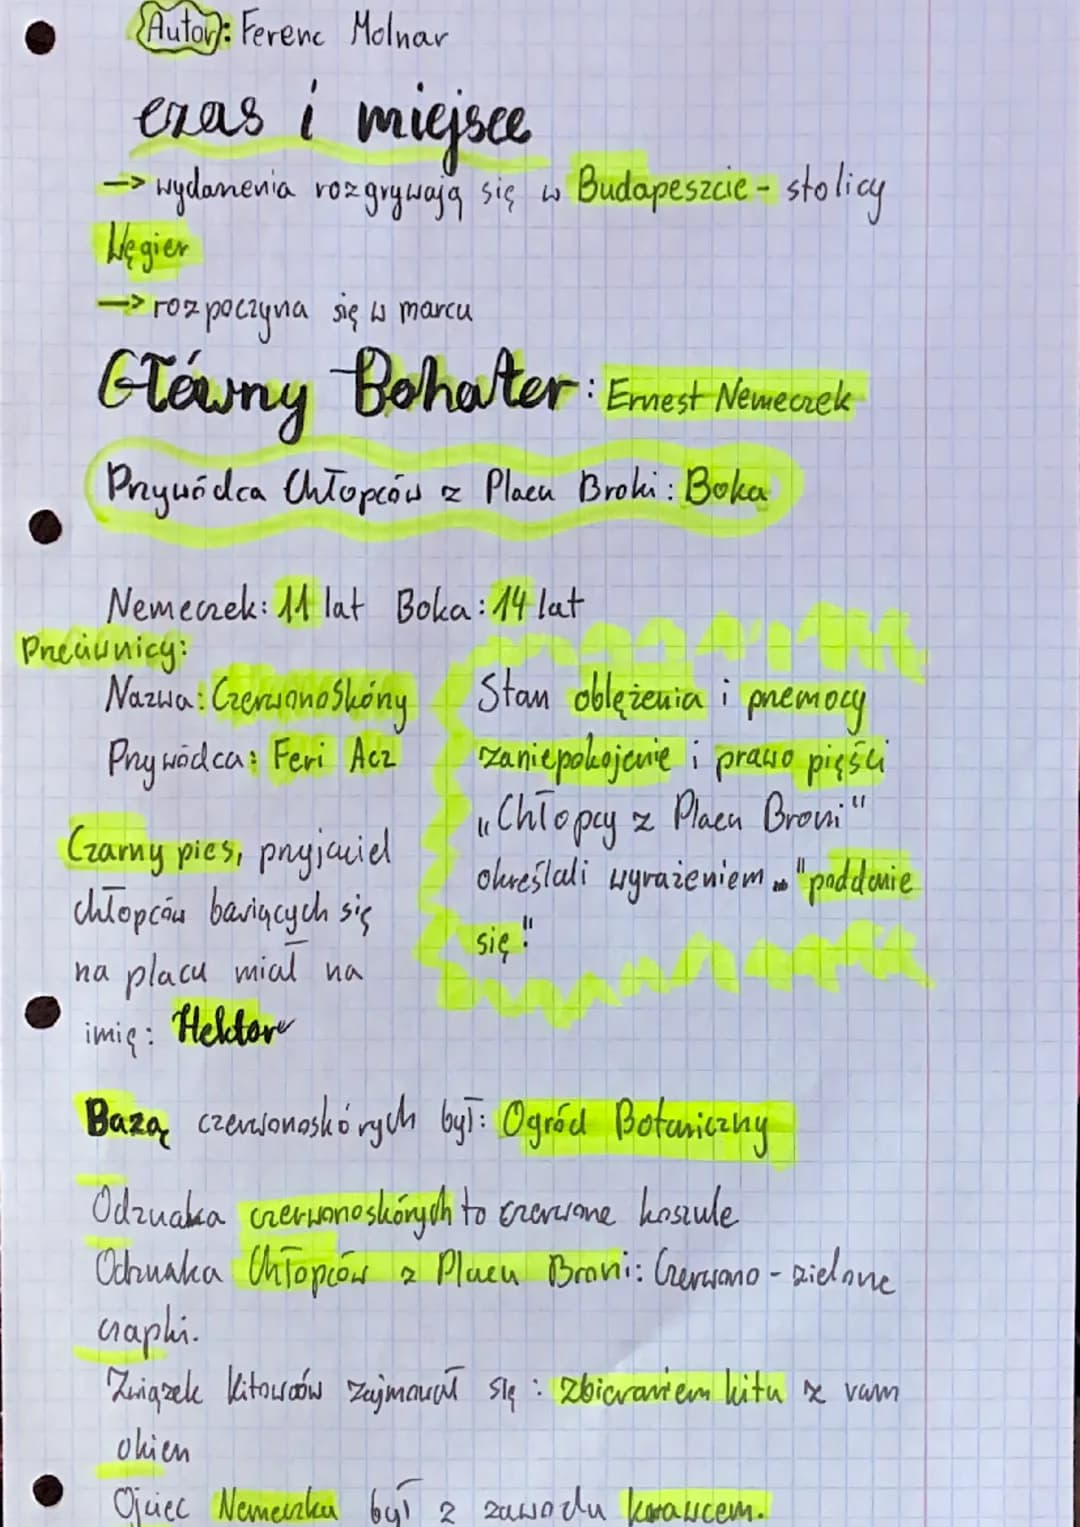 Autor: Ferenc Molnar
czas i miejsce
→ wydarzenia rozgrywają się w Budapeszcie - stolicy
Węgier
→ rozpoczyna się w marcu
Główny Bohater: Ernest Nemeczek
Przywódca Chłopców z Placu Broki: Boka
Nemeczek: 11 lat Boka: 14 lat
Przeciwnicy:
Nazwa: Czerwonoskóry
Przywódca: Feri Acz
Stan oblężenia i przemocy
zaniepokojenie i prawo pięści
„Chłopcy z Placu Broni"
określali wyrażeniem "poddanie
się"
Czarny pies, przyjaciel
chłopców bawiących się
na placu miał na
imię: Hektor
Bazą czerwonoskórych był: Ogród Botaniczny
Odznaka czerwonoskórych to czerwone koszule
Odznaka Chłopców z Placu Broni: Czerwono - zielone
czapki.
Związek Kitowców zajmował się: zbieraniem kitu z ram
okien
Ojciec Nemeczka był z zawodu krawcem.